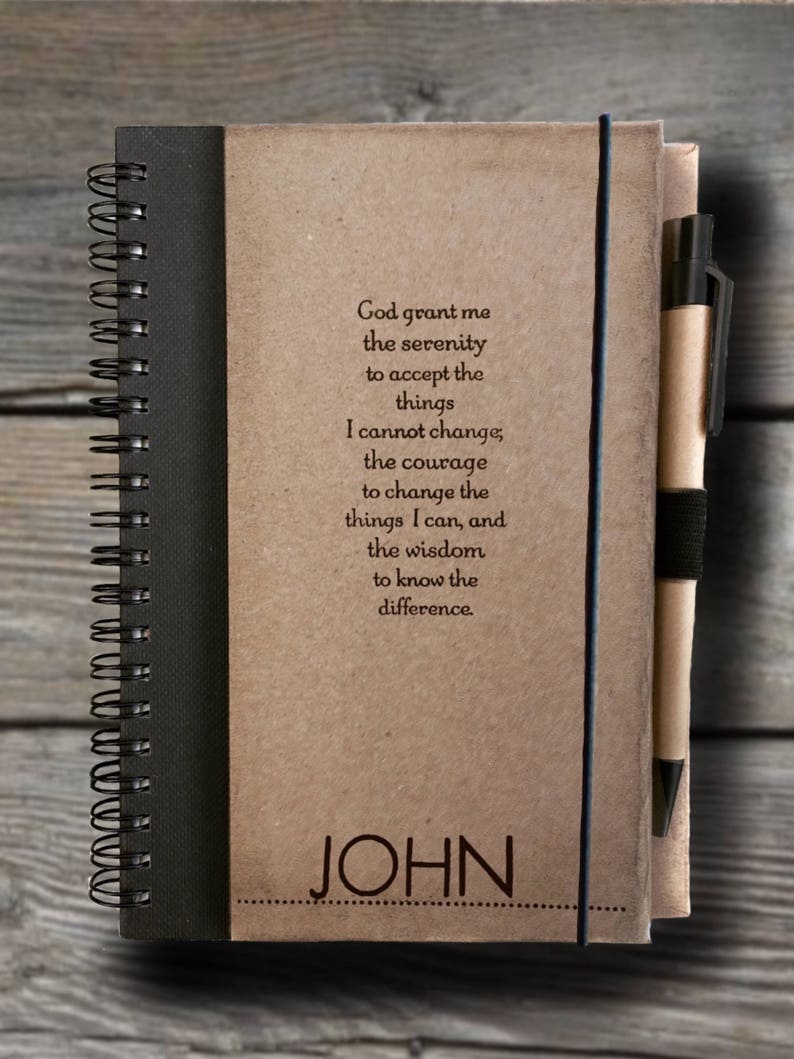 God grant me
the serenity
to accept the
things
I cannot change;
the courage
to change the
things I can, and
the wisdom
to know the
difference.
JOHN